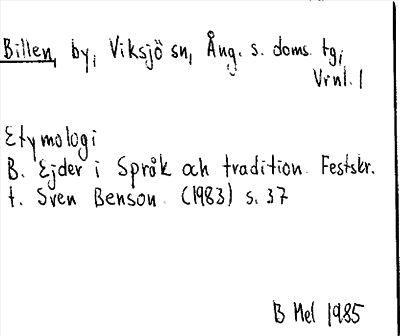 Billen, by, Viksjö sn, Ång. s. doms. tg,
Vrnl. l
Etymologi
B. Ejder i Språk och tradition. Festskr.
t. Sven Benson. (1983) s. 37
B Mel 1985